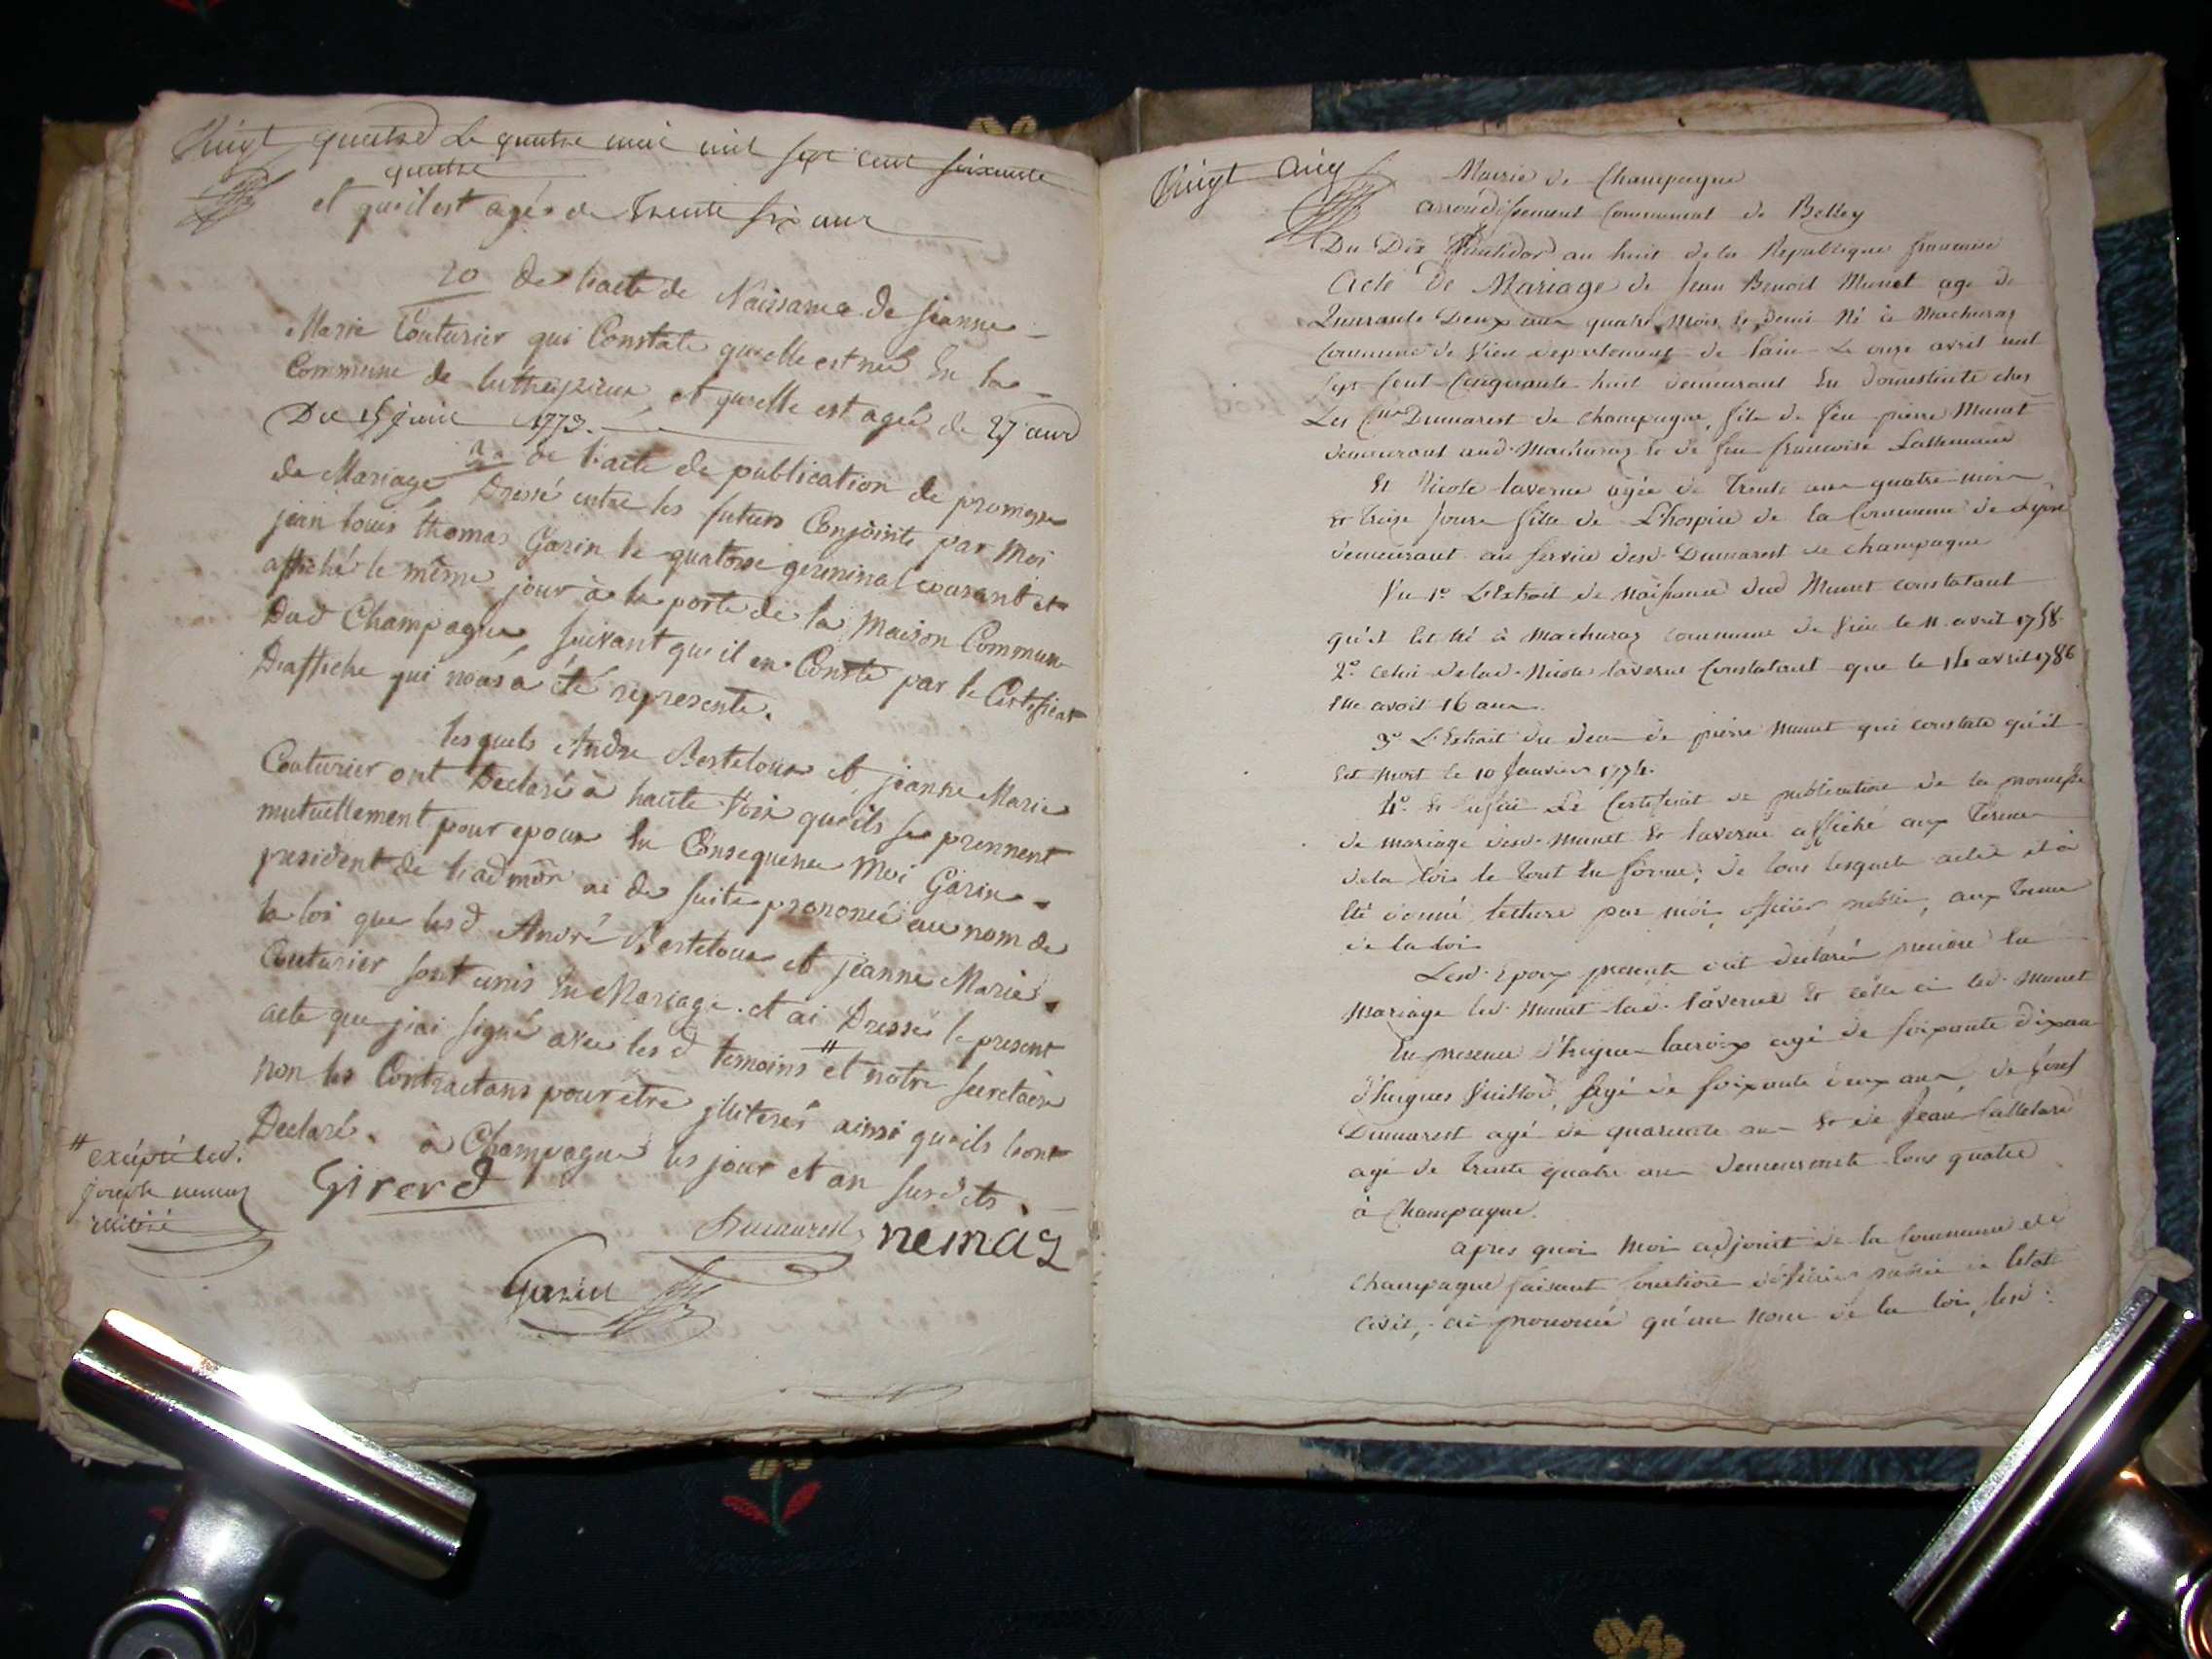 Vingt quatre Le quatre mai mil sept cent soixante
quatre
et quil est agé de Trente six ans
20 De l'acte de Naissance de jeanne
Marie Couturier qui Constate quelle est née En la
Commune de lutheizieux, et quelle est agée de 27 ans
Du 15 juin 1773.
de l'acte de publication de promesse
de Mariage Dressé entre les futurs Conjoints par Moi
jean louis thomas Garin le quatorze germinal courant et
affiché le même jour à la porte de la Maison Commune
Dud Champagne, suivant qu'il en Conste par le Certificat
D'affiche qui nous a été representé.
lesquels Andre Berthelon et jeanne Marie
Couturier ont Declaré à haute Voix qu'ils se prennent
mutuellement pour epoux En Consequence Moi Garin
president de l'admôn ai de suite prononcé au nom de
la loi que lesd André et jeanne Marie
Couturier sont unis En Mariage. et ai Dressé le present
acte que j'ai signé avec lesd temoins # et notre secretaire
non les Contractans pour être illiterés ainsi qu'ils l'ont
Declaré. à Champagne les jour et an susdits.
# excépté led.
joseph nemoz
illitéré
Girerd
Dumarest nemoz
Garin
Vingt Cinq
Mairie de Champagne
arrondissement Communal de Belley
Du Dix Thermidor an huit de la Republique francaise
Acte De Mariage de Jean Benoit Munet age de
Quarante Deux ans quatre Mois & demi Né à Machuraz
Commune de Vieu departement de l'ain Le onze avril mil
sept Cent Cinquante huit demeurant En domesticité chez
Les Cns Dumarest de champagne, fils de feu pierre Munet
demeurant aud. Machuraz & de feu francoise Lallemand
Et Nicole laverne agée de Trente ans quatre mois
& treize Jours fille de L'hospice de la Commune de Lyon
demeurant au service desd. Dumarest de champagne
Vu 1º L'Extrait de naissance dud Munet constatant
qu'il Est né à Machuraz commune de Vieu le 11 avril 1758
2º celui de lad. Nicole laverne Constatant que le 14 avril 1786
Elle avoit 16 ans.
3º L'Extrait du deces de pierre Munet qui constate qu'il
Est Mort le 10 Janvier 1774.
4º & Enfin Le Certificat de publication de la promesse
de mariage desd. Munet & laverne affiché aux Termes
de la loi le tout En forme; de tous lesquels actes il a
Eté donné lecture par moi officier public, aux Termes
de la loi
Lesd. Epoux presents ont declaré prendre En
Mariage led. Munet lad. laverne & celle ci led. Munet
En presence d'hugues lacroix agé de soixante dix ans
d'hugues Vuillod, agé de soixante deux ans, de Josef
Dumarest agé de quarante ans & de Jean
agé de trente quatre ans demeurants tous quatre
à Champagne.
apres quoi Moi adjoint de la Commune de
Champagne faisant fonctions d'officier public de l'état
civil, ai prononcé qu'au Nom de la loi, lesd: